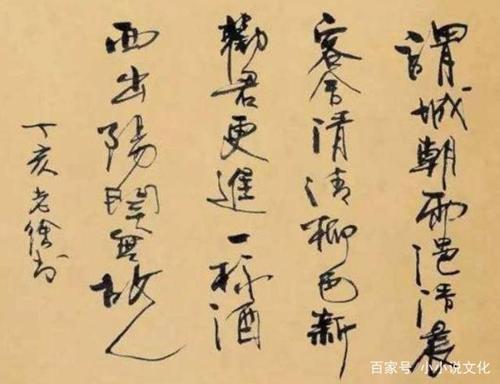 謂城朝雨浥清晨
客舍清清柳色新
勸君更進一杯酒
西出陽關無故人
丁亥老徐书
百家号/小小说文化